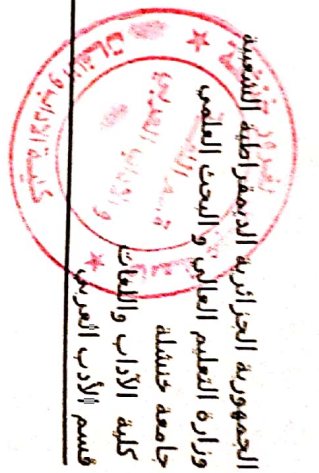 الجمهورية الجزائرية الديمقراطية الشعبية
وزارة التعليم العالي و البحث العلمي
جامعة خنشلة
كلية الآداب واللغات
قسم الأدب العربي
كلية الآداب و اللغات